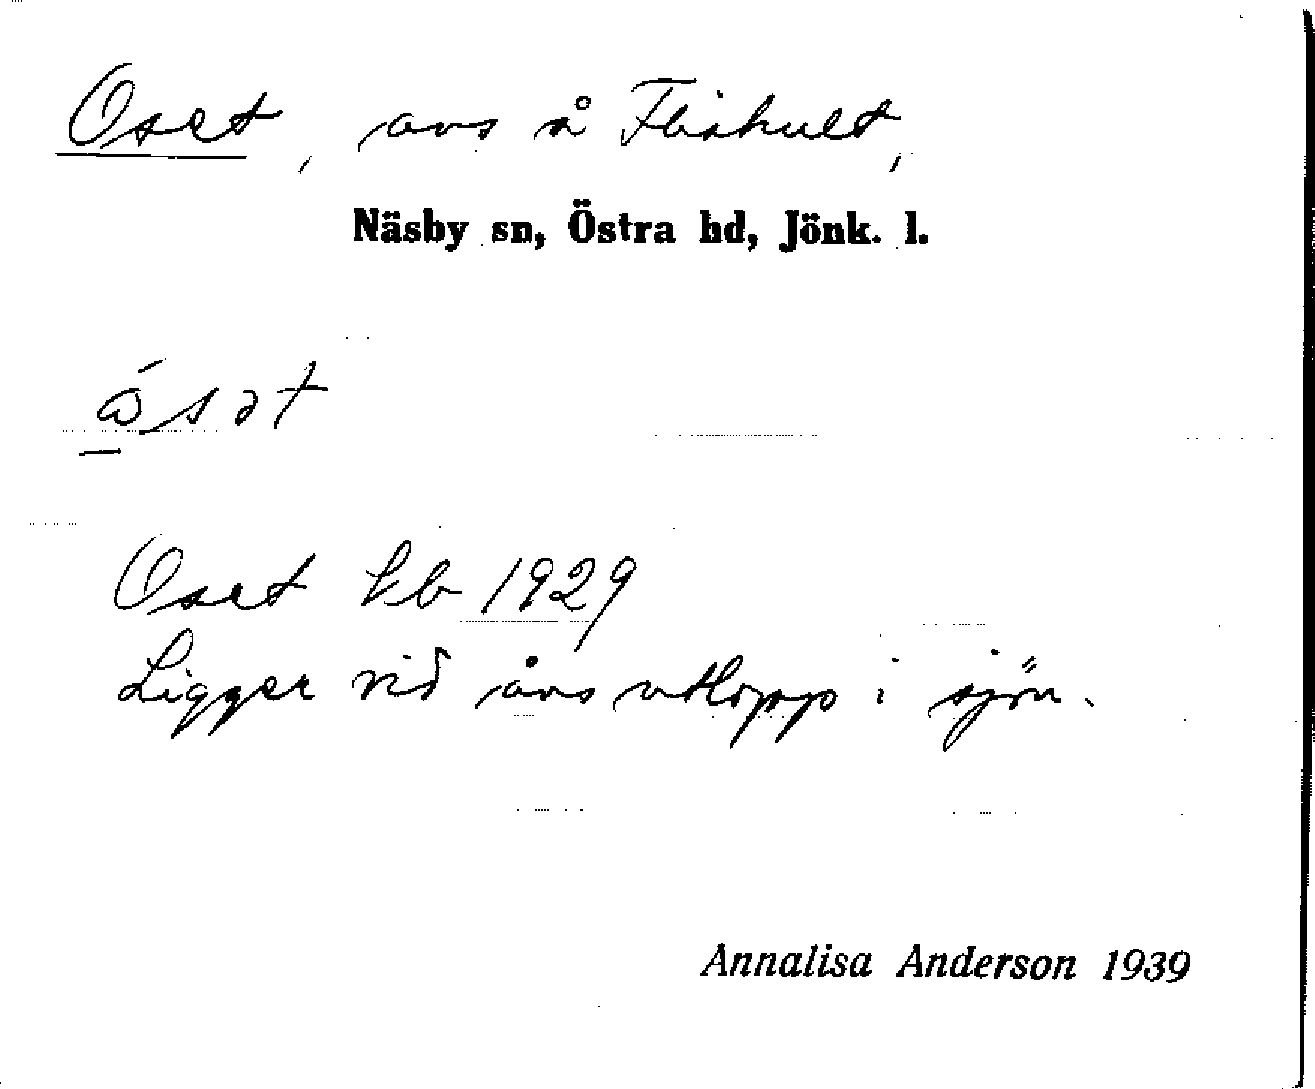 Oset, avs å Flishult,
Näsby sn, Östra hd, Jönk. l.
Oset kb 1929
Ligger vid åns utlopp i sjön.
Annalisa Anderson 1939